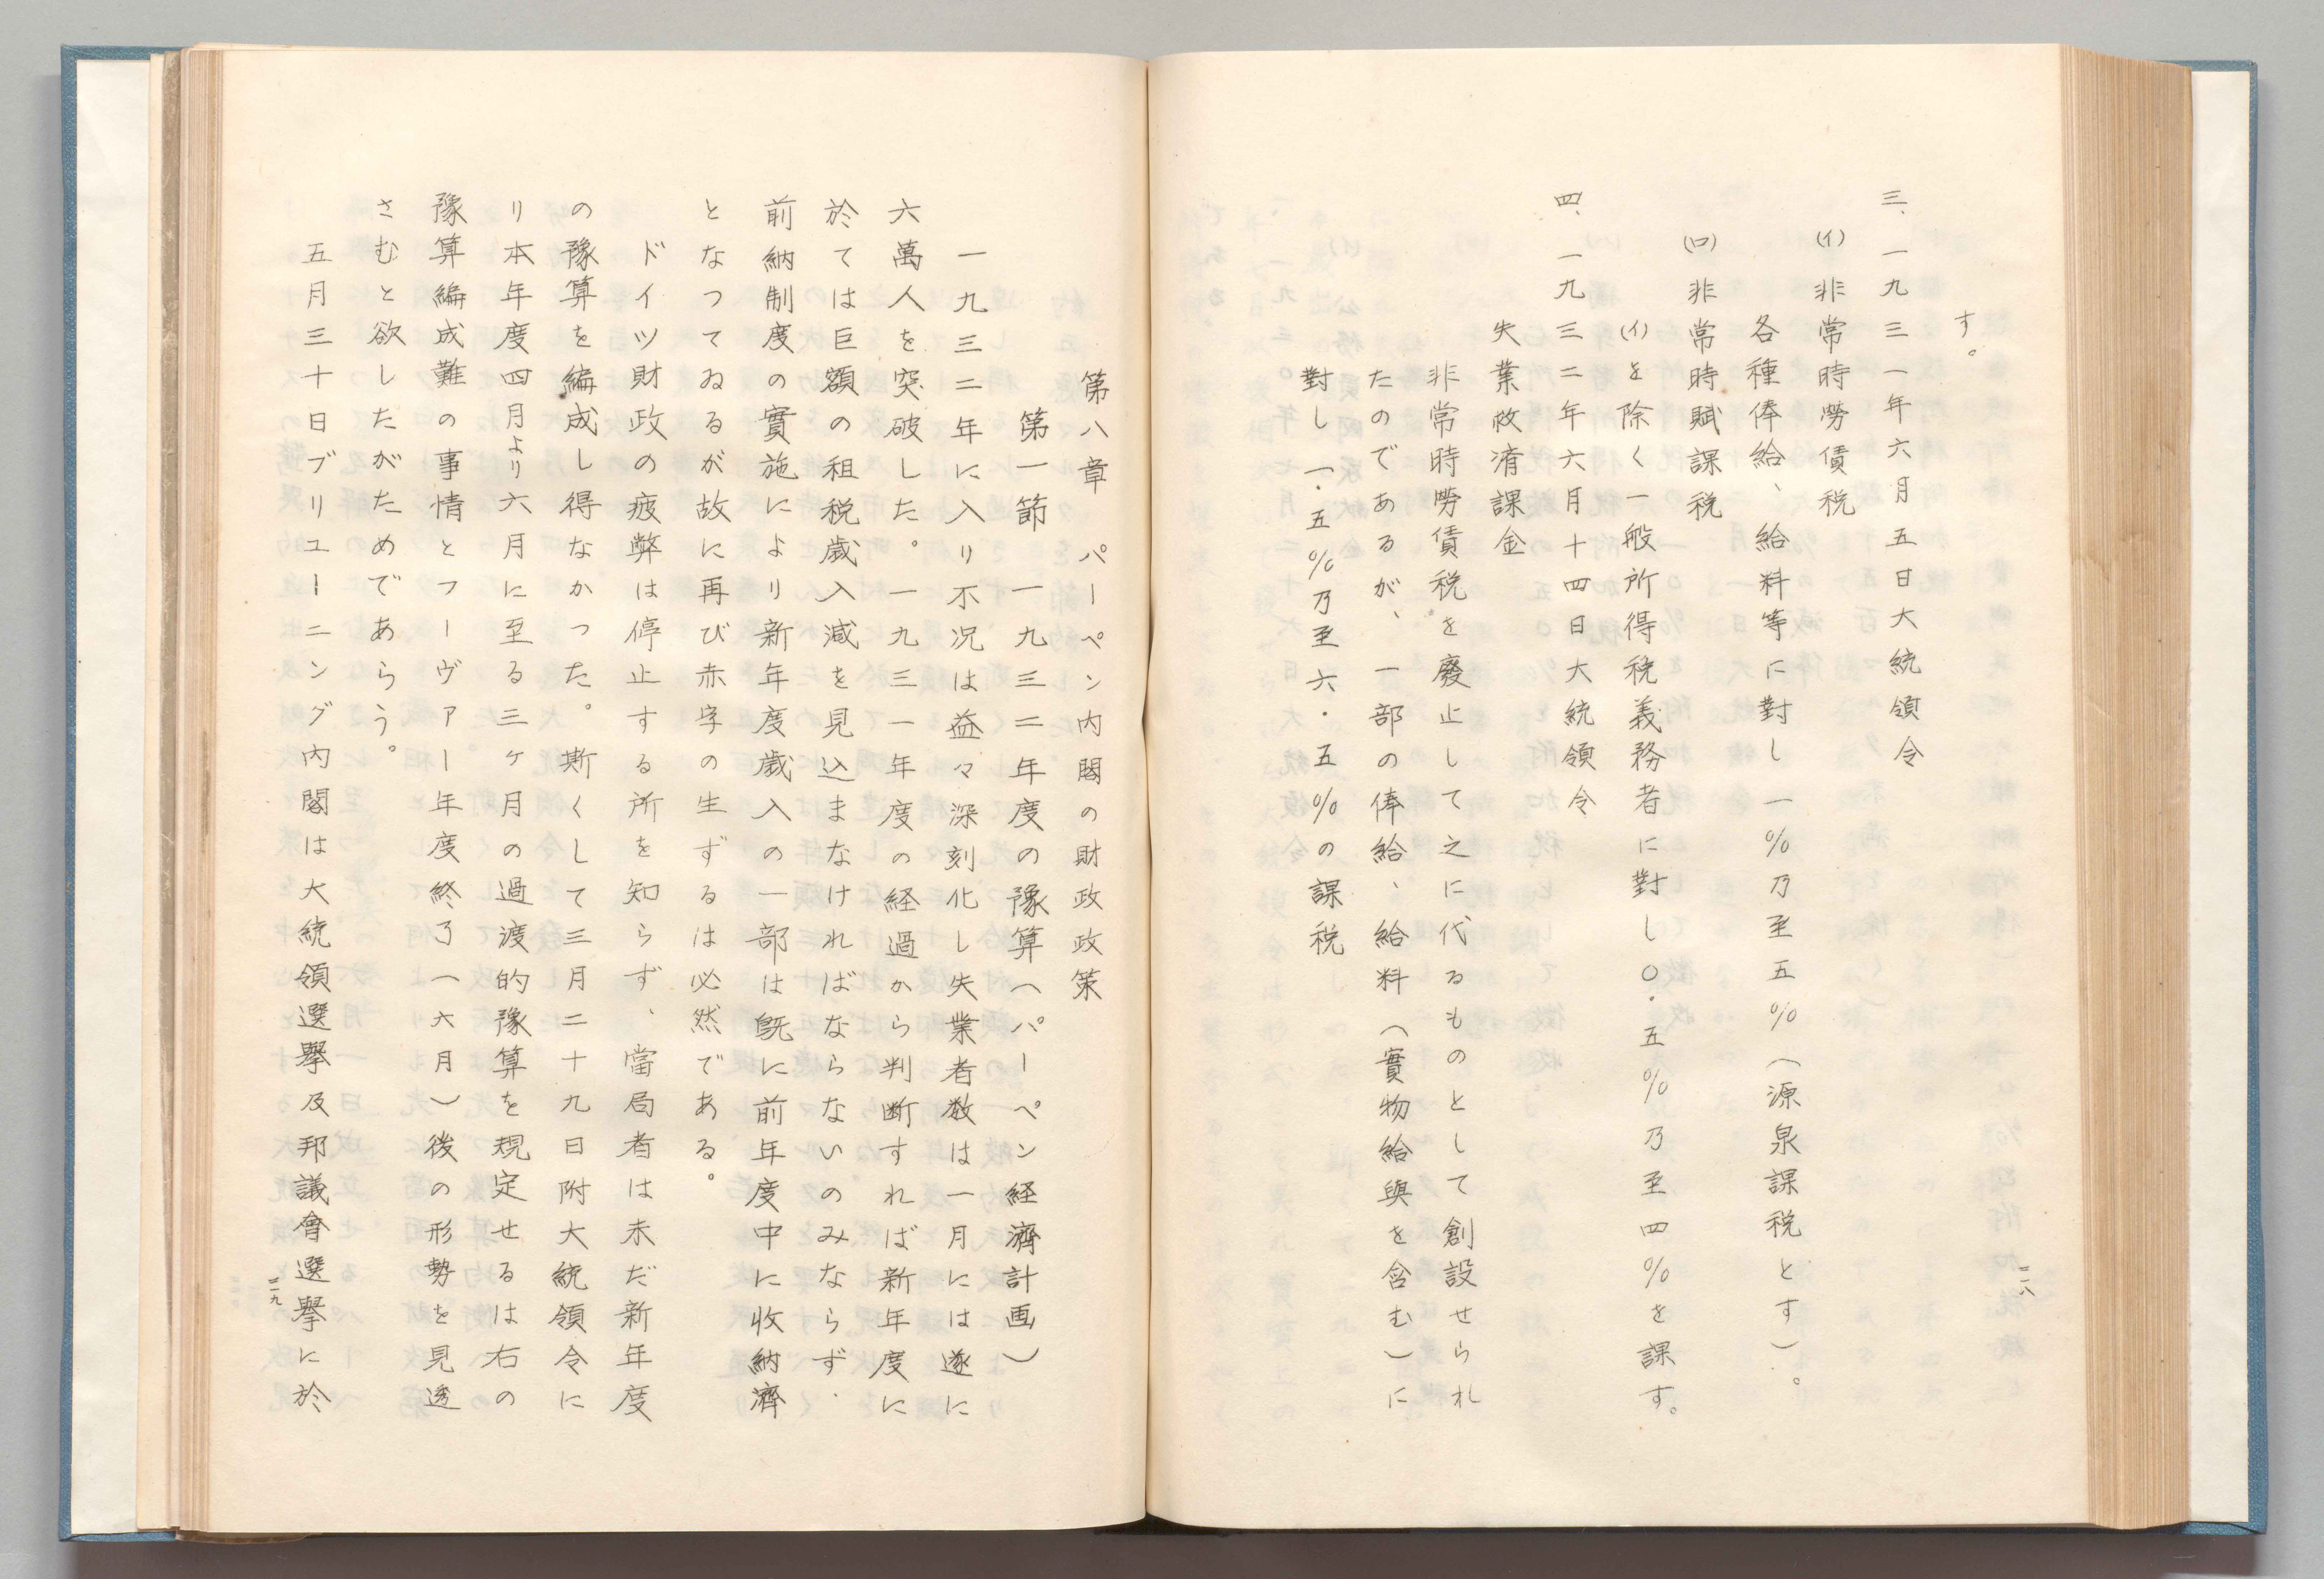 す。
三、一九三一年六月五日大統領令
(イ)非常時勞債税
各種俸給、給料等に對し一%乃至五%(源泉課税とす)。
(ロ)非常時賦課税
(イ)を除く一般所得税義務者に對し〇・五%乃至四%を課す。
四、一九三二年六月十四日大統領令
失業救済課金
非常時勞債税を廢止して之に代るものとして創設せられ
たのであるが、一部の俸給、給料(實物給與を含む)に
對し一・五%乃至六・五%の課税
三二八
第八章 パーペン内閣の財政政策
第一節 一九三二年度の豫算(パーペン経濟計画)
一九三二年に入り不況は益々深刻化し失業者数は一月には遂に
六萬人を突破した。一九三一年度の経過から判断すれば新年度に
於ては巨額の租税歳入減を見込まなければならないのみならず、
前納制度の實施により新年度歳入の一部は旣に前年度中に收納濟
となつてゐるが故に再び赤字の生ずるは必然である。
ドイツ財政の疲弊は停止する所を知らず、當局者は未だ新年度
の豫算を編成し得なかつた。斯くして三月二十九日附大統領令に
り本年度四月より六月に至る三ヶ月の過渡的豫算を規定せるは右の
豫算編成難の事情とフーヴァー年度終了(六月)後の形勢を見透
さむと欲したがためであらう。
五月三十日ブリューニング内閣は大統領選擧及邦議會選擧に於
三二九